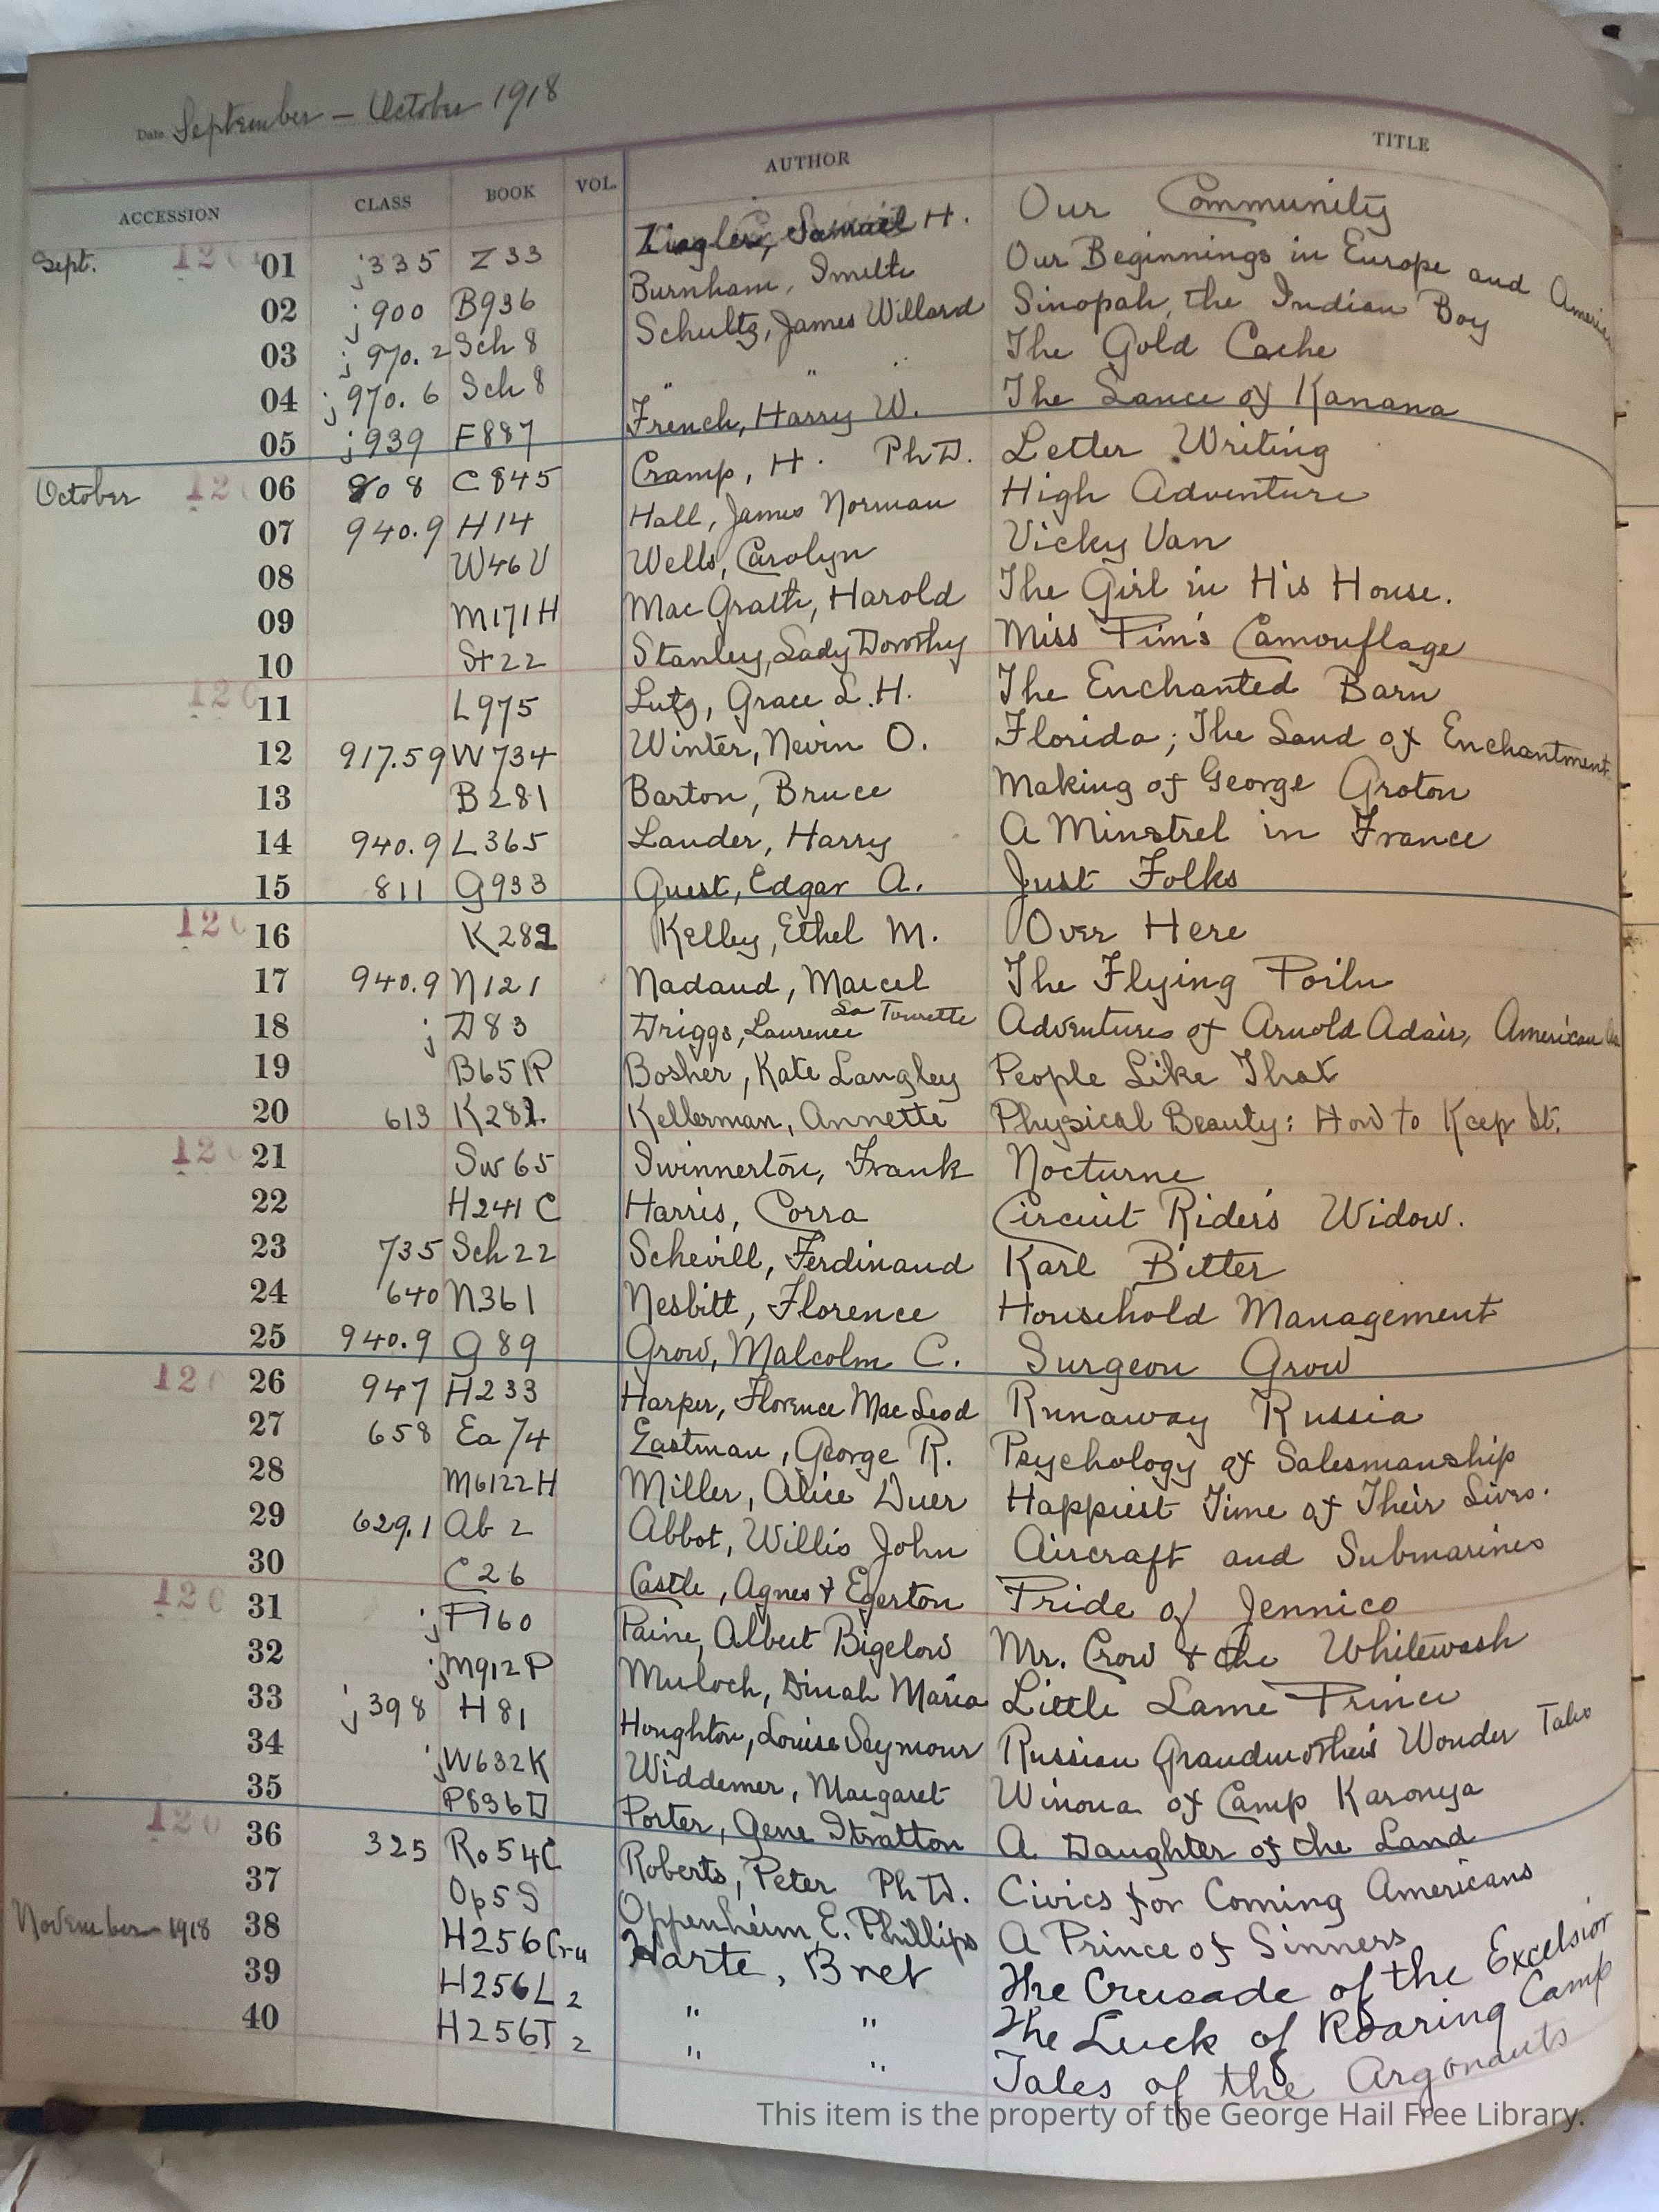 Date September – October 1918
ACCESSION CLASS BOOK VOL. AUTHOR TITLE
Sept. 120 01 j335 Z33 Ziegler, Samuel H. Our Community
02 j900 B936 Burnham, Smith Our Beginnings in Europe and America
03 j970.2 Sch8 Schultz, James Willard Sinopah, the Indian Boy
04 j970.6 Sch8 " " " The Gold Cache
05 j939 F887 French, Harry W. The Lance of Kanana
October 120 06 808 C845 Cramp, H. Ph.D. Letter Writing
07 940.9 H14 Hall, James Norman High Adventure
08 W46V Wells, Carolyn Vicky Van
09 M171H MacGrath, Harold The Girl in His House.
10 St22 Stanley, Lady Dorothy Miss Pim's Camouflage
120 11 L975 Lutz, Grace L. H. The Enchanted Barn
12 917.59 W734 Winter, Nevin O. Florida; The Land of Enchantment
13 B281 Barton, Bruce Making of George Groton
14 940.9 L365 Lauder, Harry A Minstrel in France
15 811 G933 Guest, Edgar A. Just Folks
120 16 K282 Kelley, Ethel M. Over Here
17 940.9 N121 Nadaud, Marcel The Flying Poilu
18 j D83 Driggs, Laurence La Tourette Adventures of Arnold Adair, American
19 B651P Bosher, Kate Langley People Like That
20 613 K281. Kellerman, Annette Physical Beauty: How to Keep It.
120 21 Sw65 Swinnerton, Frank Nocturne
22 H241C Harris, Corra Circuit Rider's Widow.
23 735 Sch22 Schevill, Ferdinand Karl Bitter
24 640 N361 Nesbitt, Florence Household Management
25 940.9 G89 Grow, Malcolm C. Surgeon Grow
120 26 947 H233 Harper, Florence MacLeod Runaway Russia
27 658 Ea74 Eastman, George R. Psychology of Salesmanship
28 M6122H Miller, Alice Duer Happiest Time of Their Lives.
29 629.1 Ab2 Abbot, Willis John Aircraft and Submarines
30 C26 Castle, Agnes & Egerton Pride of Jennico
120 31 j P160 Paine, Albert Bigelow Mr. Crow & the Whitewash
32 jM912P Muloch, Dinah Maria Little Lame Prince
33 j398 H81 Houghton, Louise Seymour Russian Grandmother's Wonder Tales
34 jW632K Widdemer, Margaret Winona of Camp Karonya
35 P836D Porter, Gene Stratton A Daughter of the Land
120 36 325 Ro54C Roberts, Peter Ph.D. Civics for Coming Americans
37 Op5S Oppenheim, E. Phillips A Prince of Sinners
November 1918 38 H256Cru Harte, Bret The Crusade of the Excelsior
39 H256L2 " " The Luck of Roaring Camp
40 H256T2 " " Tales of the Argonauts
This item is the property of the George Hail Free Library.